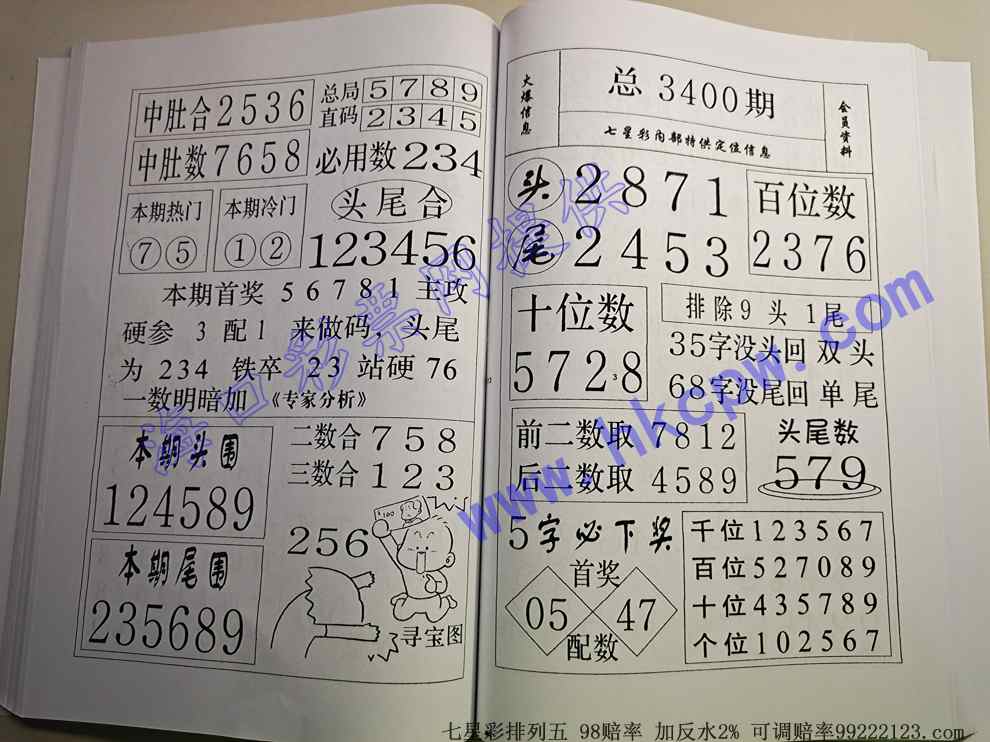 中肚合2536
总局5789
直码2345
中肚数7658
必用数234
本期热门
⑦⑤
本期冷门
①②
头尾合
123456
本期首奖 56781 主攻
硬参 3 配1 来做码，头尾
为 234 铁卒 23 站硬 76
一数明暗加 《专家分析》
本期头围
124589
本期尾围
235689
二数合 758
三数合 123
256
100
寻宝图
火爆信息
总 3400期
七星彩内部特供定位信息
会员资料
头 2871
尾 2453
百位数
2376
十位数
5728
3
排除9 头 1尾
35字没头回 双 头
68字没尾回 单 尾
前二数取 7812
后二数取 4589
头尾数
579
5字必下奖
首奖
05 47
配数
千位123567
百位527089
十位435789
个位102567
海口彩票网提供
www.hkcpw.com
七星彩排列五 98赔率 加反水2% 可调赔率99222123.com